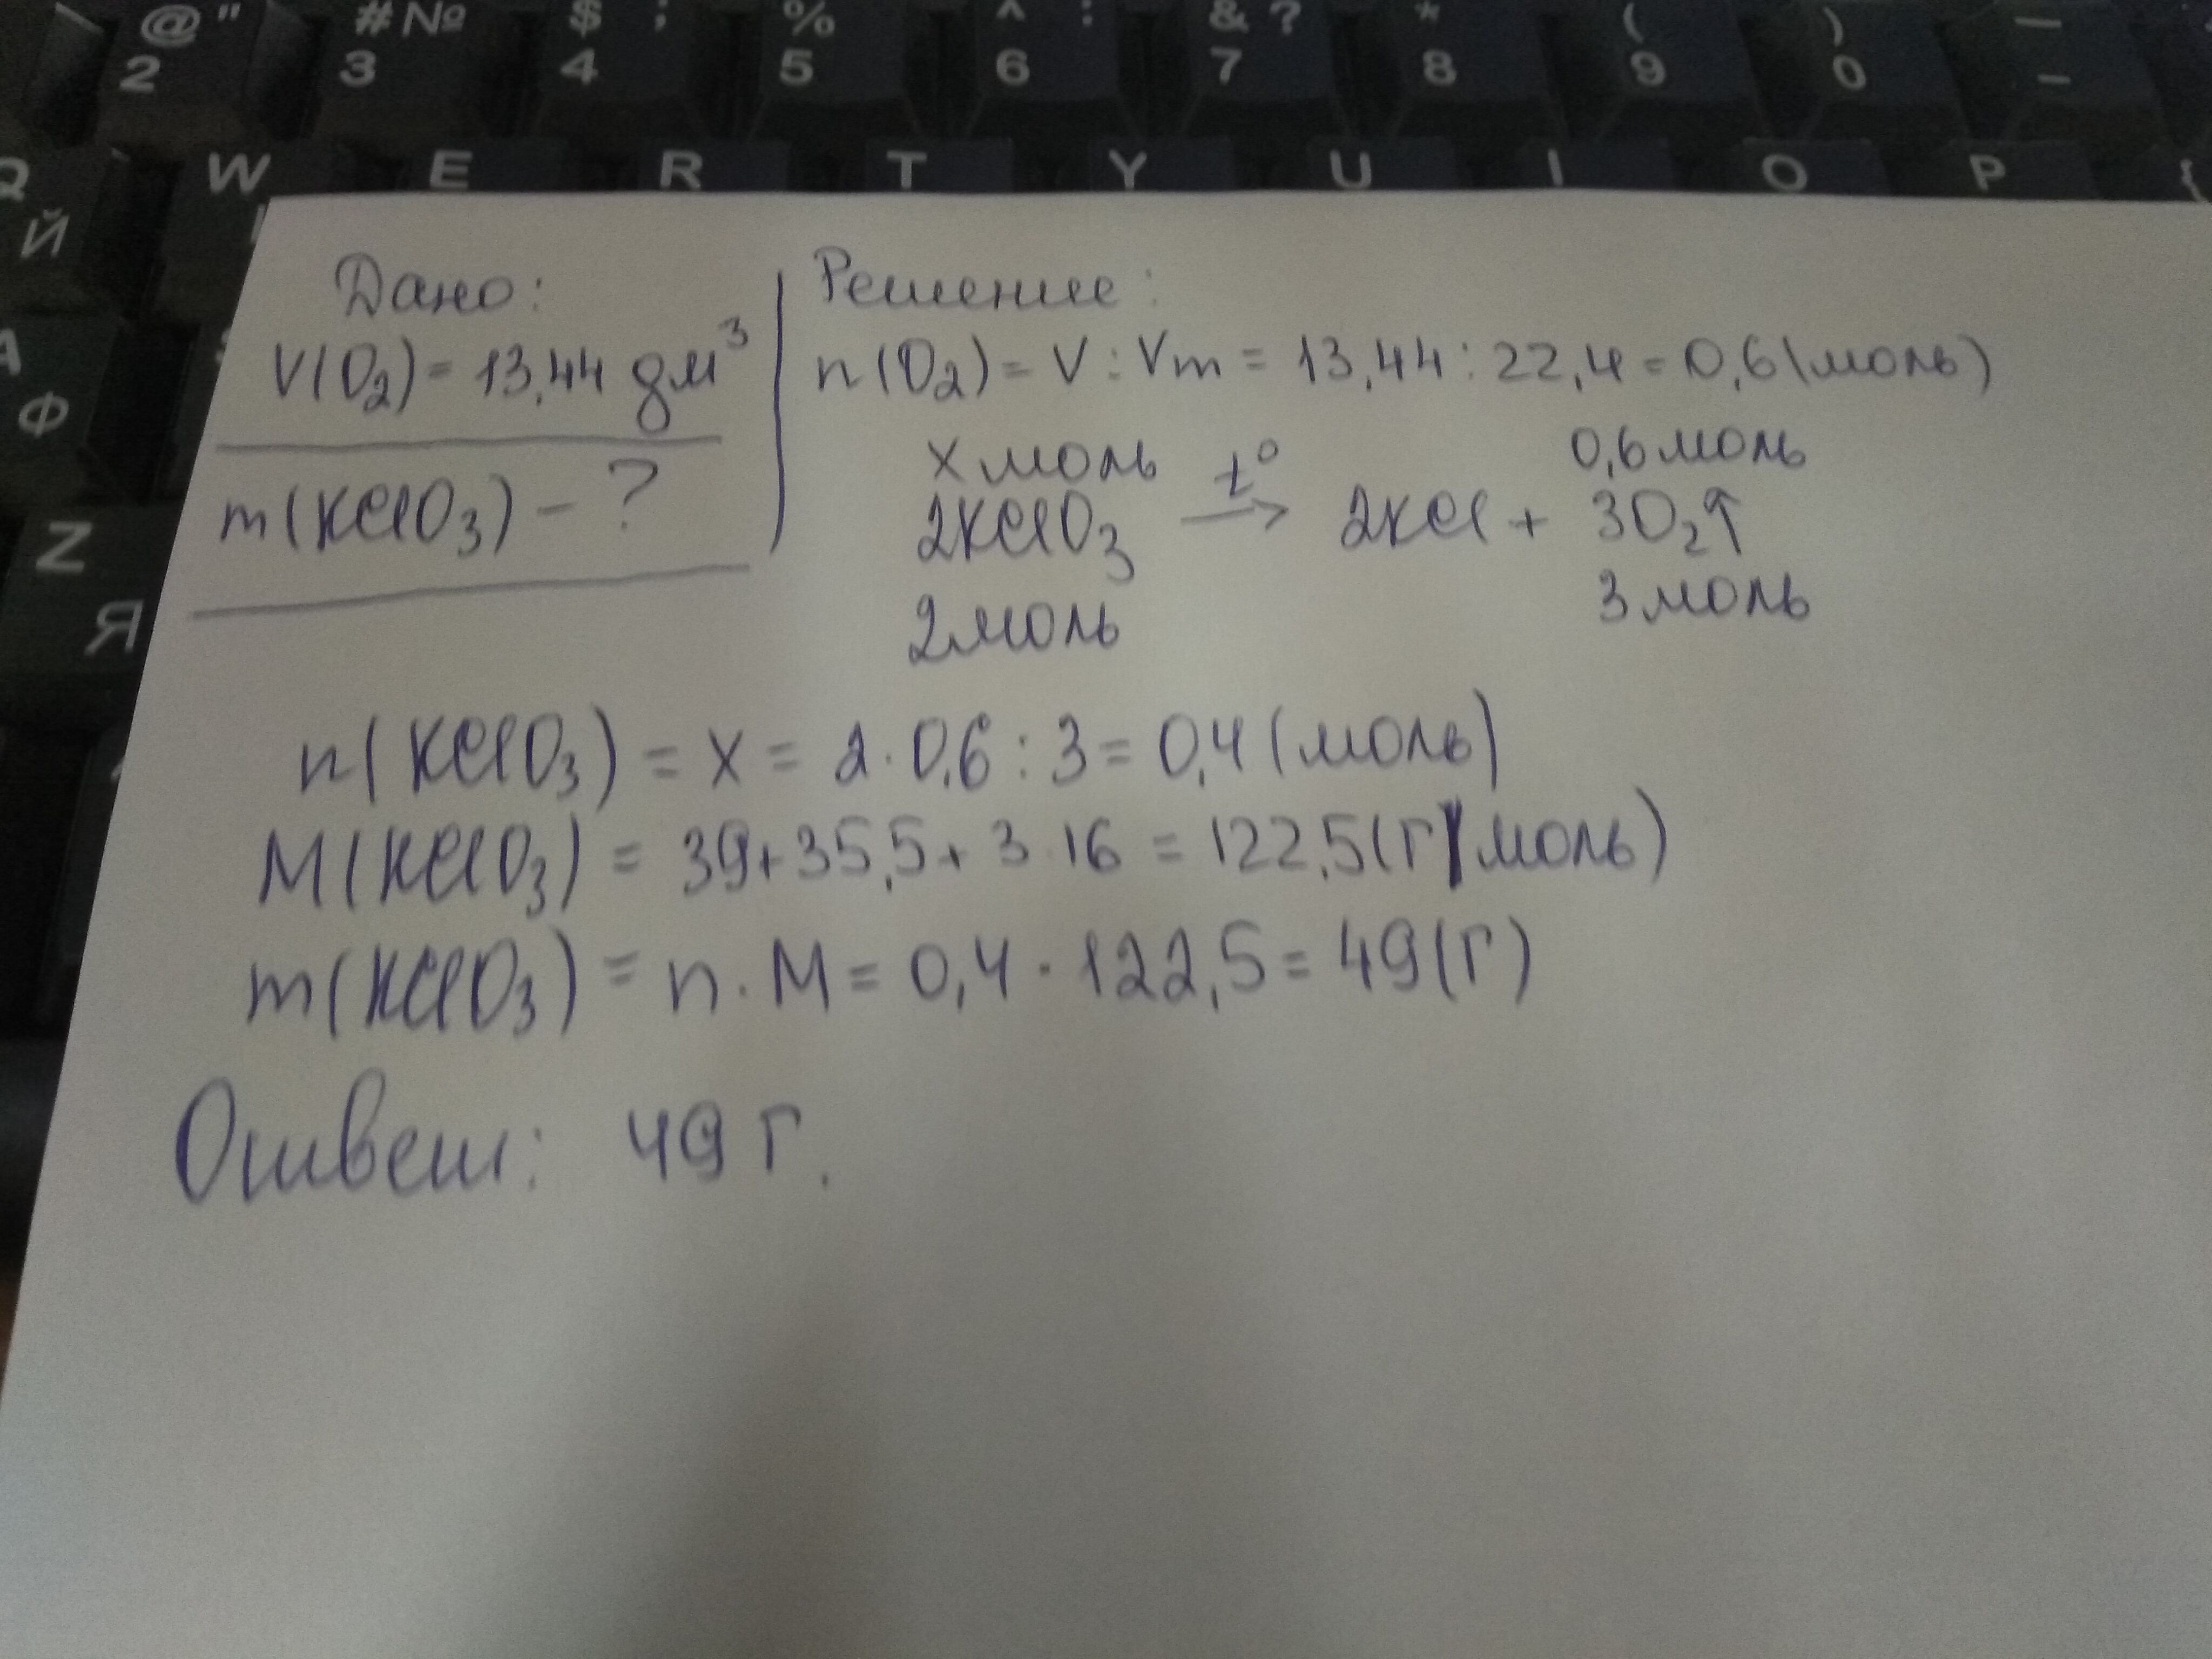 @ " # № $ ; % ^ : & ? * ( ) —
2 3 4 5 6 7 8 9 0 –
Q W E R T Y U I O P {
Й
А
Ф
Z
Я
Дано:
V(O₂) = 13,44 дм³
m(KClO₃) – ?
Решение:
n(O₂) = V : Vm = 13,44 : 22,4 = 0,6 (моль)
x моль 0,6 моль
2KClO₃ t° → 2KCl + 3O₂↑
2 моль 3 моль
n(KClO₃) = x = 2 · 0,6 : 3 = 0,4 (моль)
M(KClO₃) = 39 + 35,5 + 3 · 16 = 122,5 (г/моль)
m(KClO₃) = n · M = 0,4 · 122,5 = 49 (г)
Ответ: 49 г.